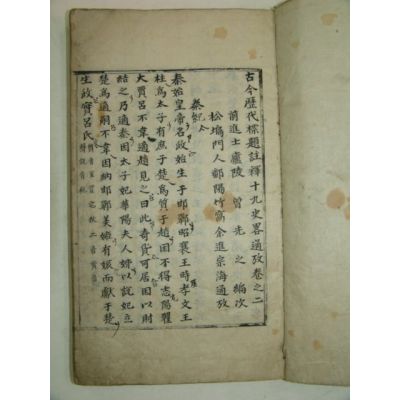 古今歷代標題註釋十九史略通攷卷之二
前進士廬陵 曾先之 編次
松塢門人鄱陽竹窩余進宗海通攷
秦紀
秦始皇帝名政始生于邯鄲昭襄王時孝文王
柱爲太子有庶子楚爲質于趙困不得志陽翟
大賈呂不韋適趙見之曰此奇貨可居因以財
結之乃適秦因太子妃華陽夫人姊以說妃立
楚爲適嗣不韋因納邯鄲美姬有娠而獻于楚
生政實呂氏